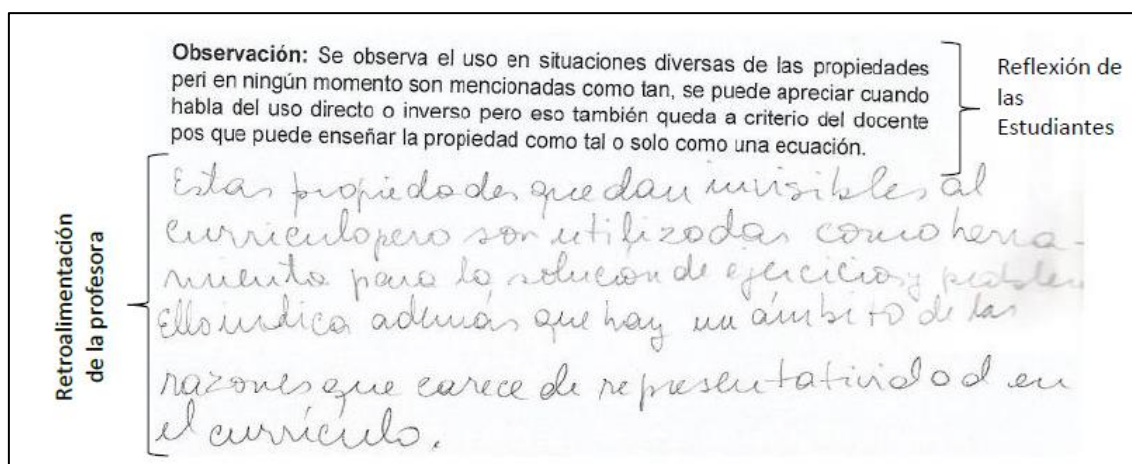 Observación: Se observa el uso en situaciones diversas de las propiedades
peri en ningún momento son mencionadas como tan, se puede apreciar cuando
habla del uso directo o inverso pero eso también queda a criterio del docente
pos que puede enseñar la propiedad como tal o solo como una ecuación.
Reflexión de
las
Estudiantes
Retroalimentación
de la profesora
Estas propiedades quedan invisibles al
currículo pero son utilizadas como herra-
mienta para la solución de ejercicios y problem
Ello indica además que hay un ámbito de las
razones que carece de representatividad en
el currículo.